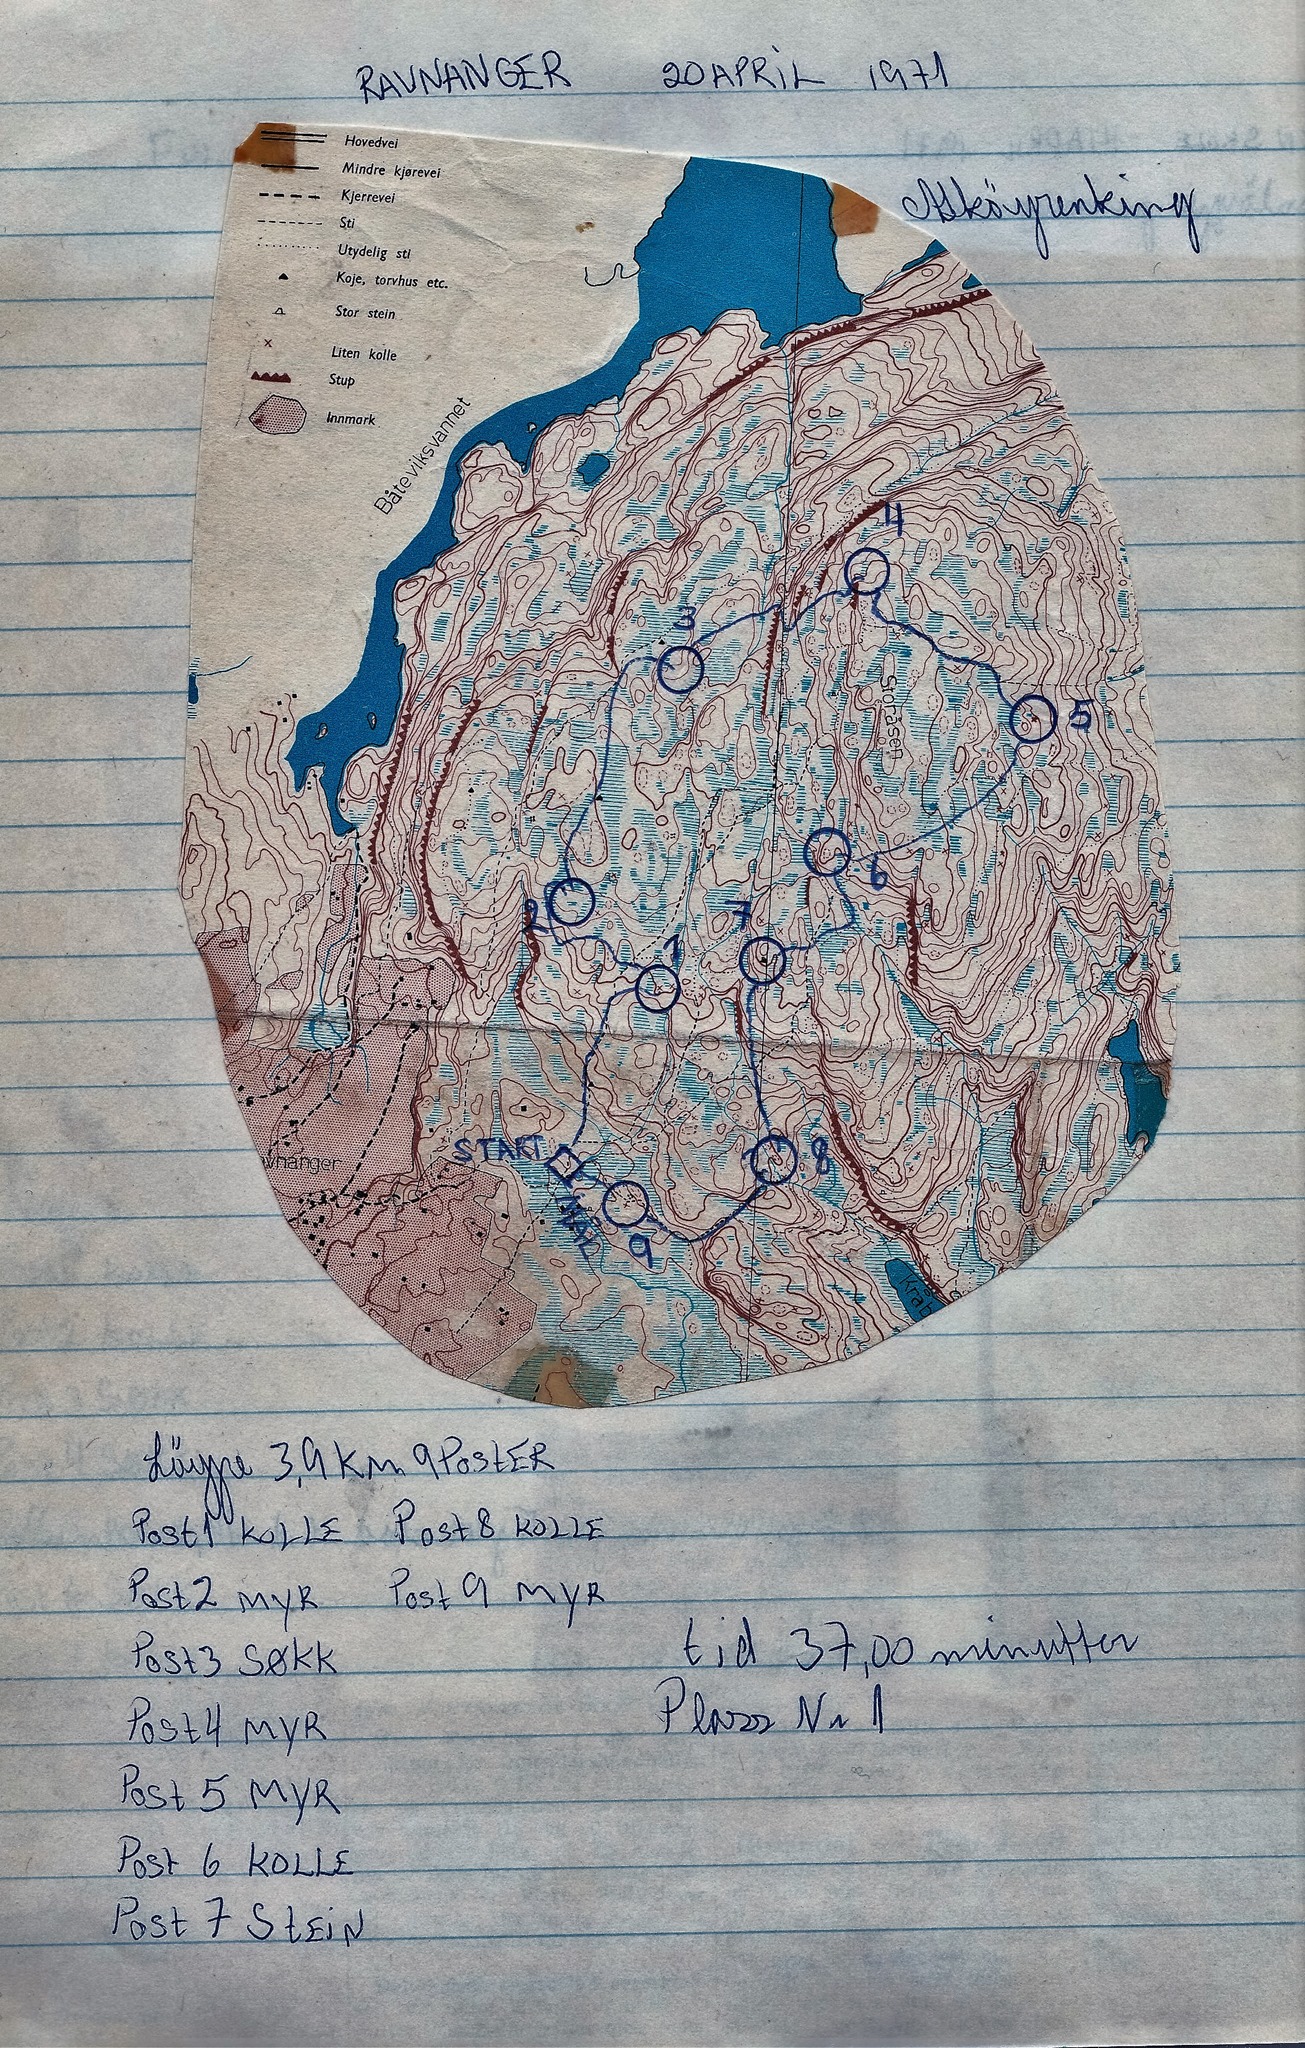 RAVNANGER 20 APRIL 1971
Hovedvei
Mindre kjørevei
Kjerrevei
Sti
Utydelig sti
Koje, torvhus etc.
Stor stein
Liten kolle
Stup
Innmark
Båteviksvannet
4
3
Storåsen
5
6
2
7
1
START
MÅL
8
9
vnanger
Krab
Löype 3,9 km 9 PostER
Post 1 KOLLE Post 8 KOLLE
Post 2 MYR Post 9 MYR
Post 3 SØKK
Post 4 MYR
Post 5 MYR
Post 6 KOLLE
Post 7 StEiN
tid 37,00 minutter
Plass Nr 1